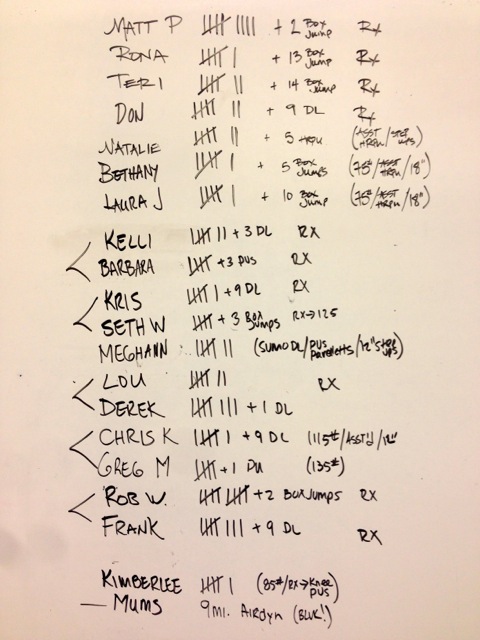 MATT P 卌 |||| + 2 Box Jump Rx
RONA 卌 | + 13 Box Jump Rx
TERI 卌 || + 14 Box Jump Rx
DON 卌 || + 9 DL Rx
NATALIE 卌 || + 5 HRPU (ASST HRPU/STEP UPS)
BETHANY 卌 | + 5 Box Jumps (75#/ASST HRPU/18")
LAURA J 卌 | + 10 Box Jump (75#/ASST HRPU/18")
KELLI 卌 || + 3 DL RX
BARBARA 卌 + 3 PUS RX
KRIS 卌 | + 9 DL RX
SETH W 卌 + 3 Box Jumps RX→125
MEGHANN 卌 || (SUMO DL/PUS Paraletts/12" STEP UPS)
LOU 卌 || RX
DEREK 卌 ||| + 1 DL
CHRIS K 卌 | + 9 DL (115#/ASST'd/12"
GREG M 卌 + 1 PU (135#)
ROB W. 卌 卌 + 2 BOX JUMPS RX
FRANK 卌 ||| + 9 DL RX
KIMBERLEE 卌 | (85#/RX→Knee PUS)
— MUMS 9 mi. AIRDYN (BLUK!)